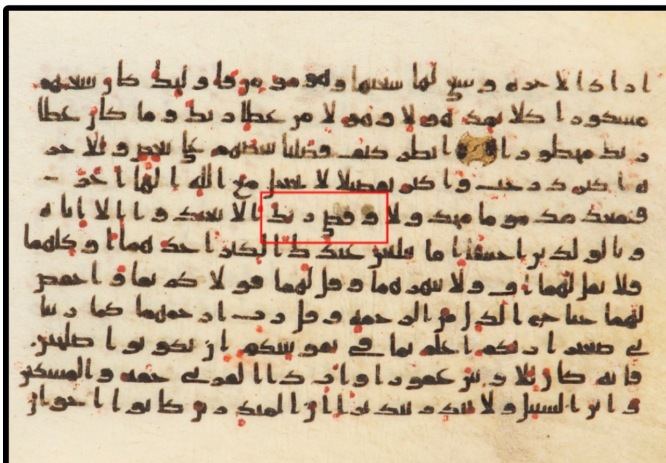 اراد الاخرة وسعى لها سعيها وهو مومن فاوليك كان سعيهم
مشكورا كلا نمد هولا وهولا من عطا ربك وما كان عطا
ربك محظورا انظر كيف فضلنا بعضهم على بعض وللاخر
ة اكبر درجت واكبر تفضيلا لا تجعل مع الله الها اخر
فتقعد مذموما مخذولا وقضى ربك الا تعبدوا الا اياه
وبالولدين احسنا اما يبلغن عندك الكبر احدهما او كلهما
فلا تقل لهما اف ولا تنهرهما وقل لهما قولا كريما واخفض
لهما جناح الذل من الرحمة وقل رب ارحمهما كما ربيا
ني صغيرا ربكم اعلم بما في نفوسكم ان تكونوا صلحين
فانه كان للاوبين غفورا وات ذا القربى حقه والمسكين
وابن السبيل ولا تبذر تبذيرا ان المبذرين كانوا اخوان